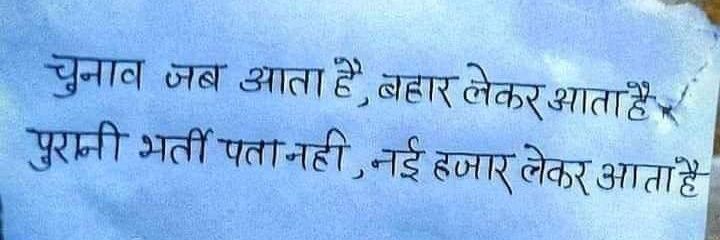 चुनाव जब आता है, बहार लेकर आता है
पुरानी भर्ती पता नही, नई हजार लेकर आता है